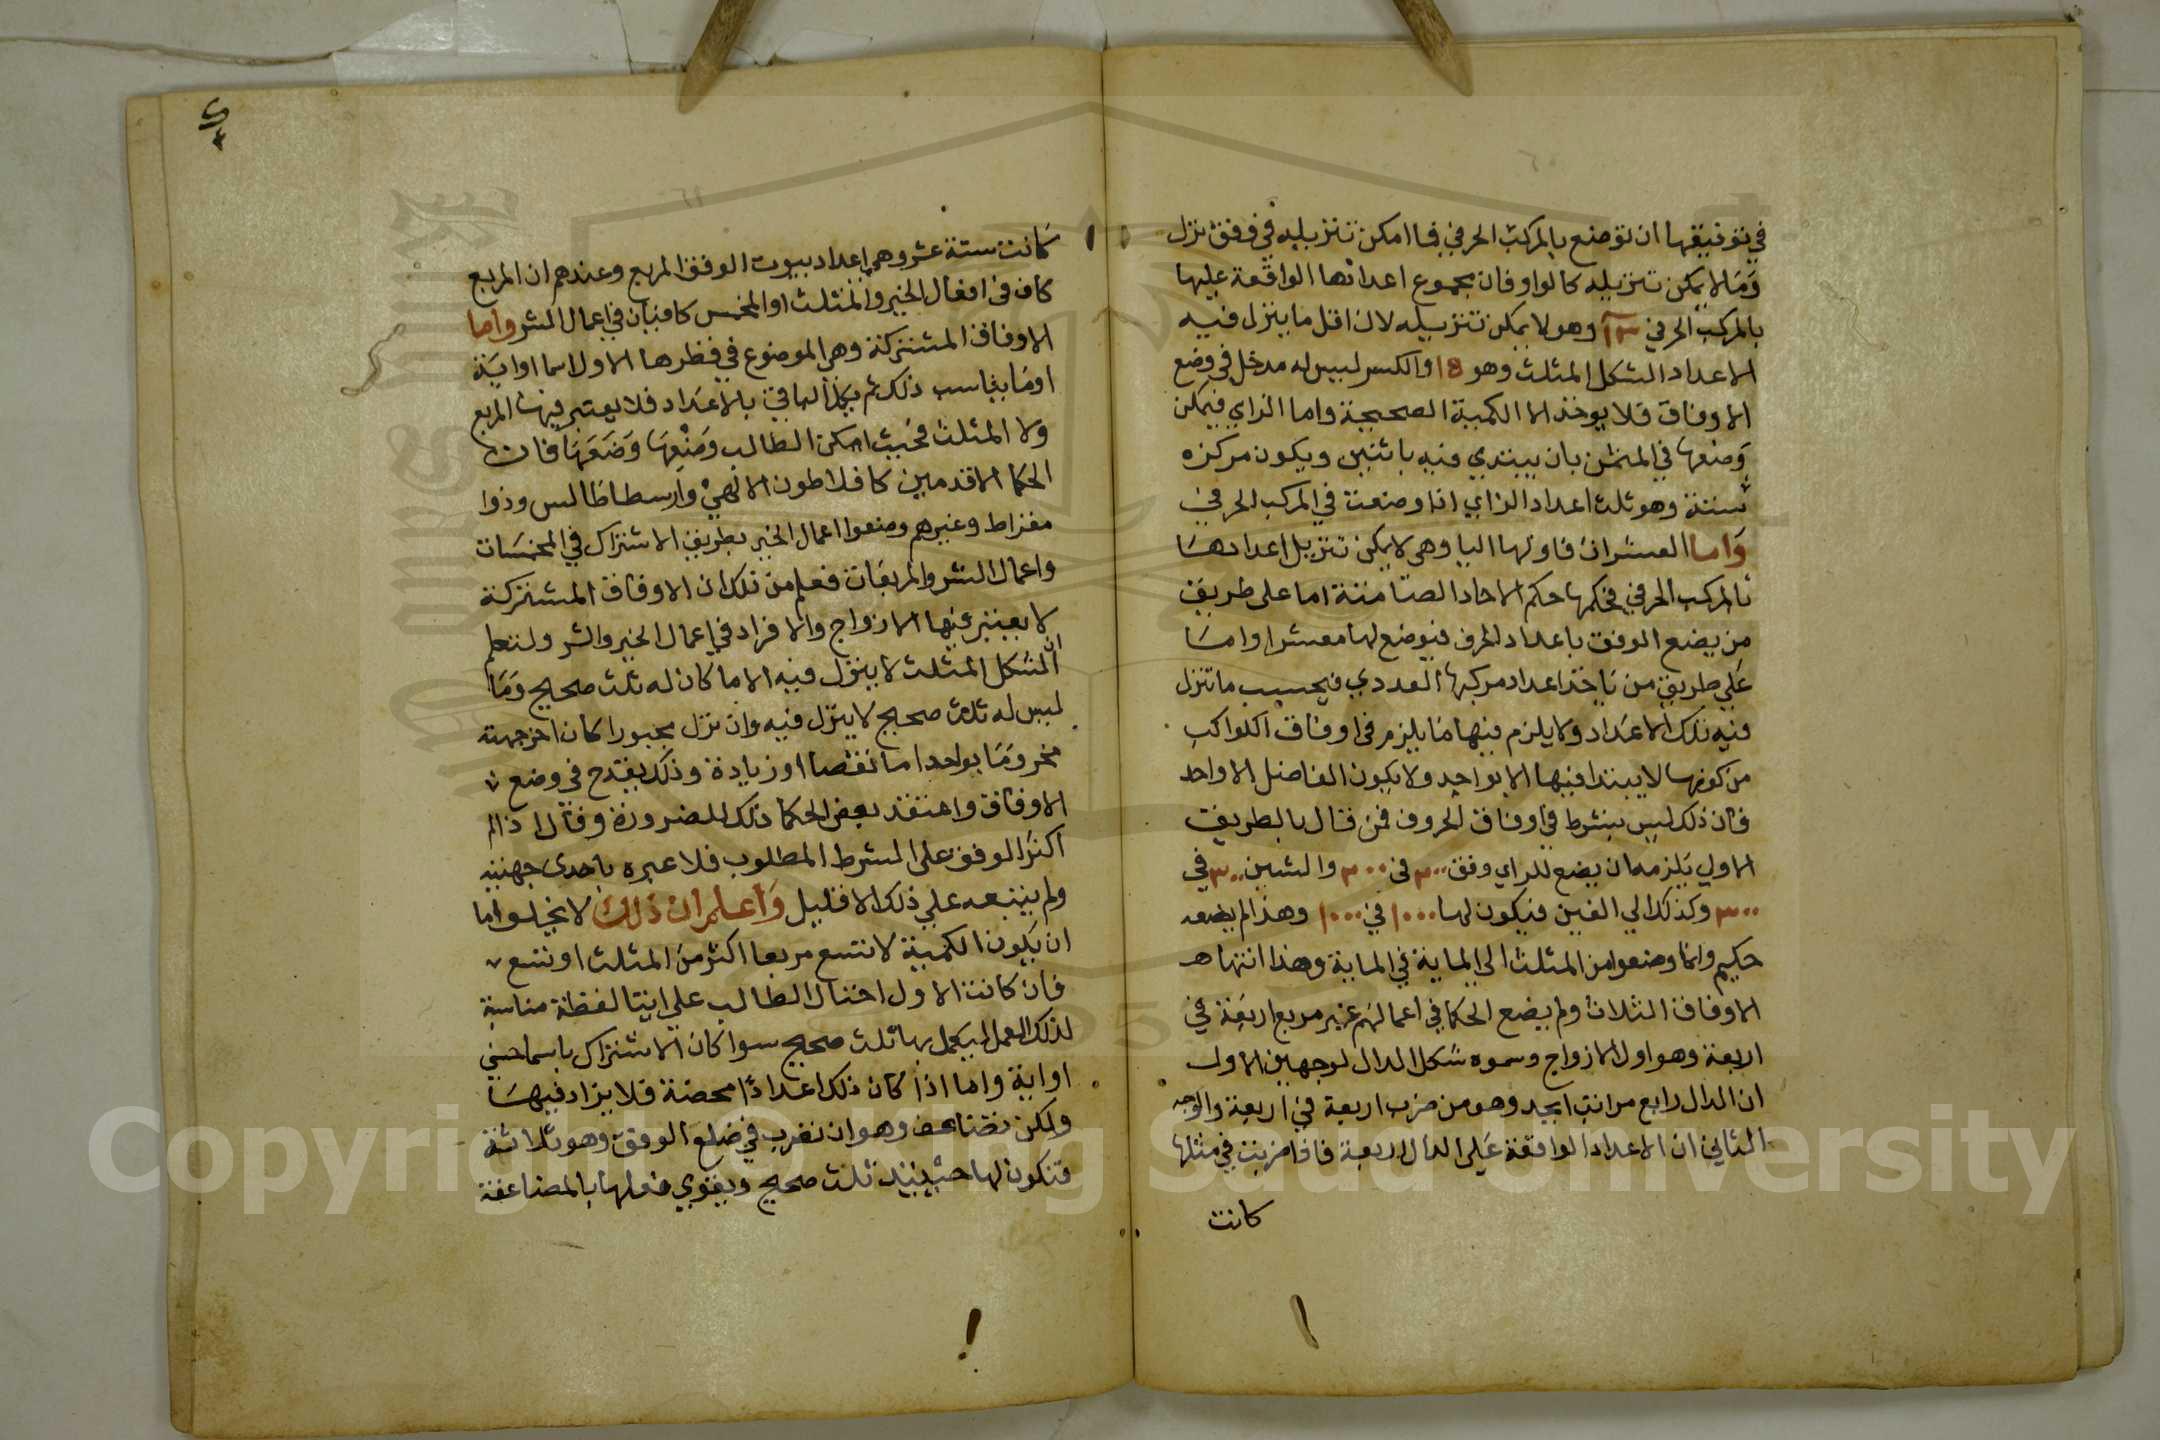 في توفيقها ان توضع بالمركب الحرفي فما امكن تنزيله في وفق نزل
وما لا يمكن تنزيله كالواو فان مجموع اعدادها الواقعة عليها
بالمركب الحرفي ١٣ وهو لا يمكن تنزيله لان اقل ما ينزل فيه
الاعداد الشكل المثلث وهو ١٥ والكسر ليس له مدخل في وضع
الاوفاق فلا يوخذ الا الكمية الصحيحة واما الزاي فيمكن
وضعها في المثلث بان يبتدي فيه باثنين ويكون مركزه
ستة وهو ثلث اعداد الزاي اذا وضعت في المركب الحرفي
واما العشرات فاولها اليا وهي لا يمكن تنزيل اعدادها
بالمركب الحرفي فحكمها حكم الاحاد الصامتة اما على طريق
من يضع الوفق باعداد الحرف فيوضع لها معشرا واما
على طريق من ياخذ اعداد مركبها العددي فبحسب ما تنزل
فيه تلك الاعداد ولا يلزم فيها ما يلزم في اوفاق الكواكب
من كونها لا يبتدا فيها الا بواحد ولا يكون الفاضل الا واحد
فان ذلك ليس بشرط في اوفاق الحروف فمن قال بالطريق
الاولي يلزمه ان يضع للراي وفق ٢٠٠ في ٢٠٠ والشين ٣٠٠ في
٣٠٠ وكذلك الي الغين فيكون لها ١٠٠٠ في ١٠٠٠ وهذا لم يضعه
حكيم وانما وضعوا من المثلث الي الماية في الماية وهذا انتها
الاوفاق الثلاث ولم يضع الحكما في اعمالهم غير مربع اربعة في
اربعة وهو اول الازواج وسموه شكل الدال لوجهين الاول
ان الدال رابع مراتب ابجد وهو من ضرب اربعة في اربعة والوجه
الثاني ان الاعداد الواقعة علي الدال اربعة فاذا ضربت في مثلها
كانت
كانت ستة عشر وهي اعداد بيوت الوفق المربع وعندهم ان المربع
كاف في افعال الخير والمثلث او المخمس كافيان في اعمال الشر واما
الاوفاق المشتركة وهي الموضوع في قطرها الاول اسما او اية
او ما يناسب ذلك ثم يكمل الباقي بالاعداد فلا يعتبر فيها المربع
ولا المثلث فحيث امكن الطالب وضعها وضعها فان
الحكما الاقدمين كافلاطون الالهي وارسطاطاليس وذوا
مقراط وغيرهم وضعوا اعمال الخير بطريق الاشتراك في المخمسات
واعمال الشر والمربعات فعلم من ذلك ان الاوفاق المشتركة
لا يعتبر فيها الازواج والافراد في اعمال الخير والشر ولتعلم
ان الشكل المثلث لا ينزل فيه الا ما كان له ثلث صحيح وما
ليس له ثلث صحيح لا ينزل فيه وان نزل مجبورا كان احد جهته
مخروما بواحد اما نقصا او زيادة وذلك يقدح في وضع
الاوفاق واعتقد بعض الحكما ذلك للضرورة وقال اذا لم
اكثر الوفق على الشرط المطلوب فلا عبره باحدى جهتيه
ولم يتبعه علي ذلك الا قليل واعلم ان ذلك لا يخلوا اما
ان يكون الكمية لا تتسع مربعا اكثر من المثلث او تتسع
فان كانت الاول احتال الطالب علي اتيا لفظة مناسبة
لذلك العمل ليكمل بها ثلث صحيح سوا كان الاشتراك باسما حسني
او اية واما اذا كان ذلك اعدادًا محضة فلا يزاد فيها
ولكن تضاعف وهو ان تضرب في ضلع الوفق وهو ثلاثة
فتكون لها حينيذ ثلث صحيح ويقوي فعلها بالمضاعفة
Copyright © King Saud University